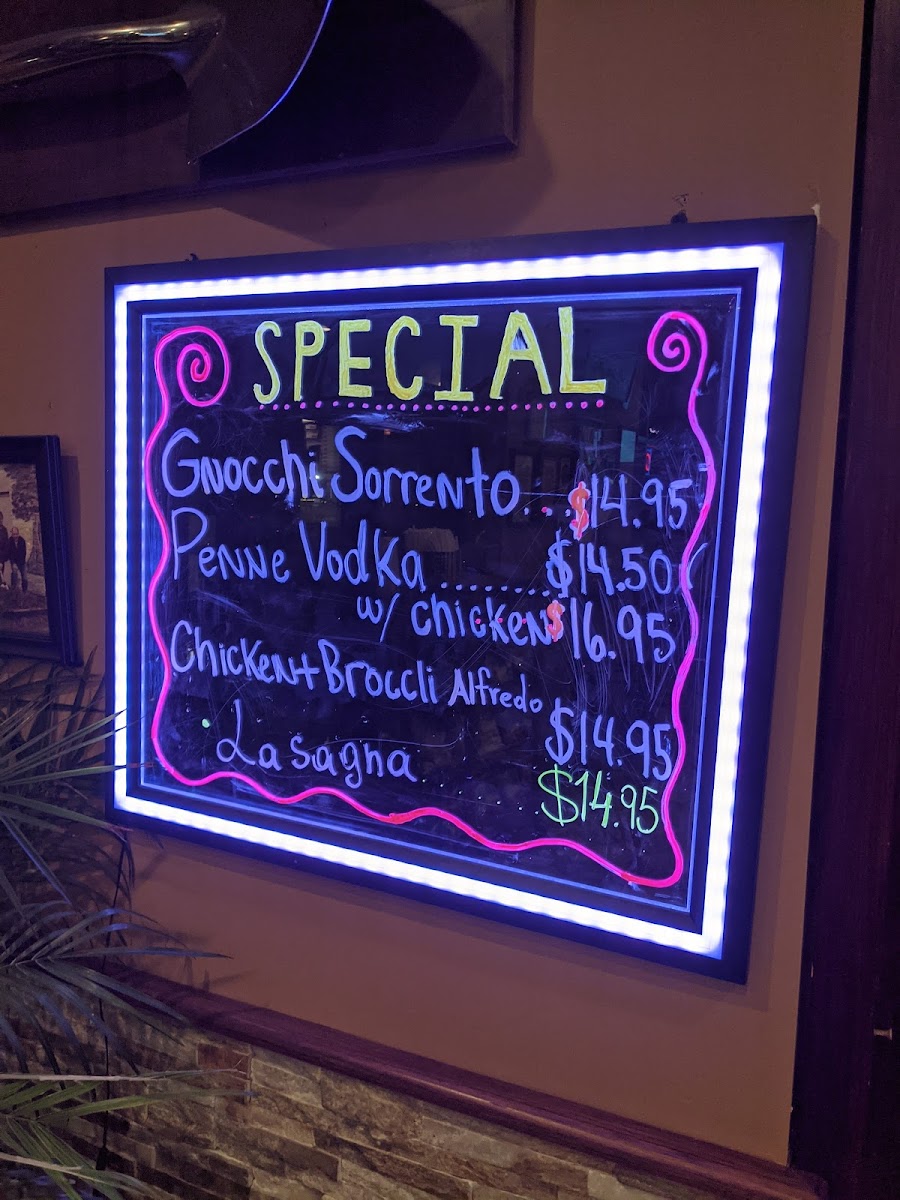 SPECIAL
Gnocchi Sorrento...$14.95
Penne Vodka.......$14.50
w/ chicken $16.95
Chicken+Broccli Alfredo
$14.95
Lasagna
$14.95